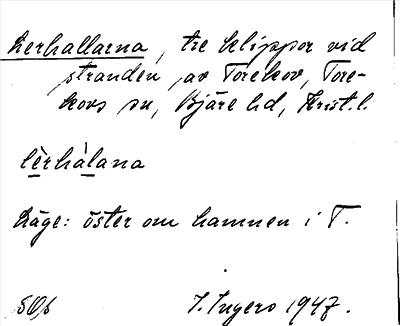 Lerhallarna, tre klippor vid
stranden av Torekov, Tore-
kovs sn, Bjäre hd, Krist. l.
lèrhàlana
Läge: öster om hamnen i T.
I. Ingers 1947.